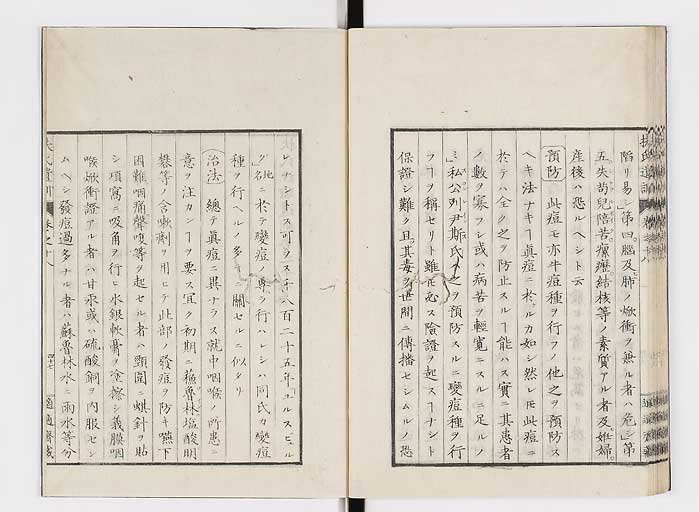 陷リ易シ」第四。腦及肺ノ焮衝ヲ無ル者ハ危シ」第
五失苟兒陪苦。瘰癧結核等ノ素質アル者及姙婦。
産後ハ恐ルヘシト云
預防 此痘モ亦牛痘種ヲ行フノ他之ヲ預防ス
ヘキ法ナキヿ眞痘ニ於ルカ如シ然レ𪜈此痘ニ
於テハ全ク之ヲ防止スルヿ能ハス實ニ其患者
ノ數ヲ寡フシ或ハ病苦ヲ輕寛ニスルニ足ルノ
ミ私公列尹斯氏之ヲ預防スルニ變痘種ヲ行
フヿヲ稱セリト雖𪜈必ス險證ヲ起スヿナシト
保證シ難ク且其毒ヲ世間ニ傳播セシムルノ恐
レナシトス可ラス千八百二十五年「ユルスヒュル
グ」地名ニ於テ變痘ノ專ラ行ハレシハ同氏カ變痘
種ヲ行ヘルノ多キニ關セルニ似タリ
治法 總テ眞痘ニ異ナラス就中咽喉ノ所患ニ
意ヲ注カンヿヲ要ス宜ク初期ニ蘓魯林塩酸明
礬等ノ含嗽劑ヲ用ヒテ此部ノ發痘ヲ防キ嚥下
困難咽痛聲嗄等ヲ起セル者ハ頸圍ニ蜞針ヲ貼
シ項窩ニ吸角ヲ行ヒ水銀軟膏ヲ塗擦シ義膜咽
喉焮衝證アル者ハ甘汞或ハ硫酸銅ヲ内服セシ
ムヘシ發痘過多ナル者ハ蘇魯林水ニ雨水等分
扶氏遺訓 卷之十八 四十七 適適齋藏